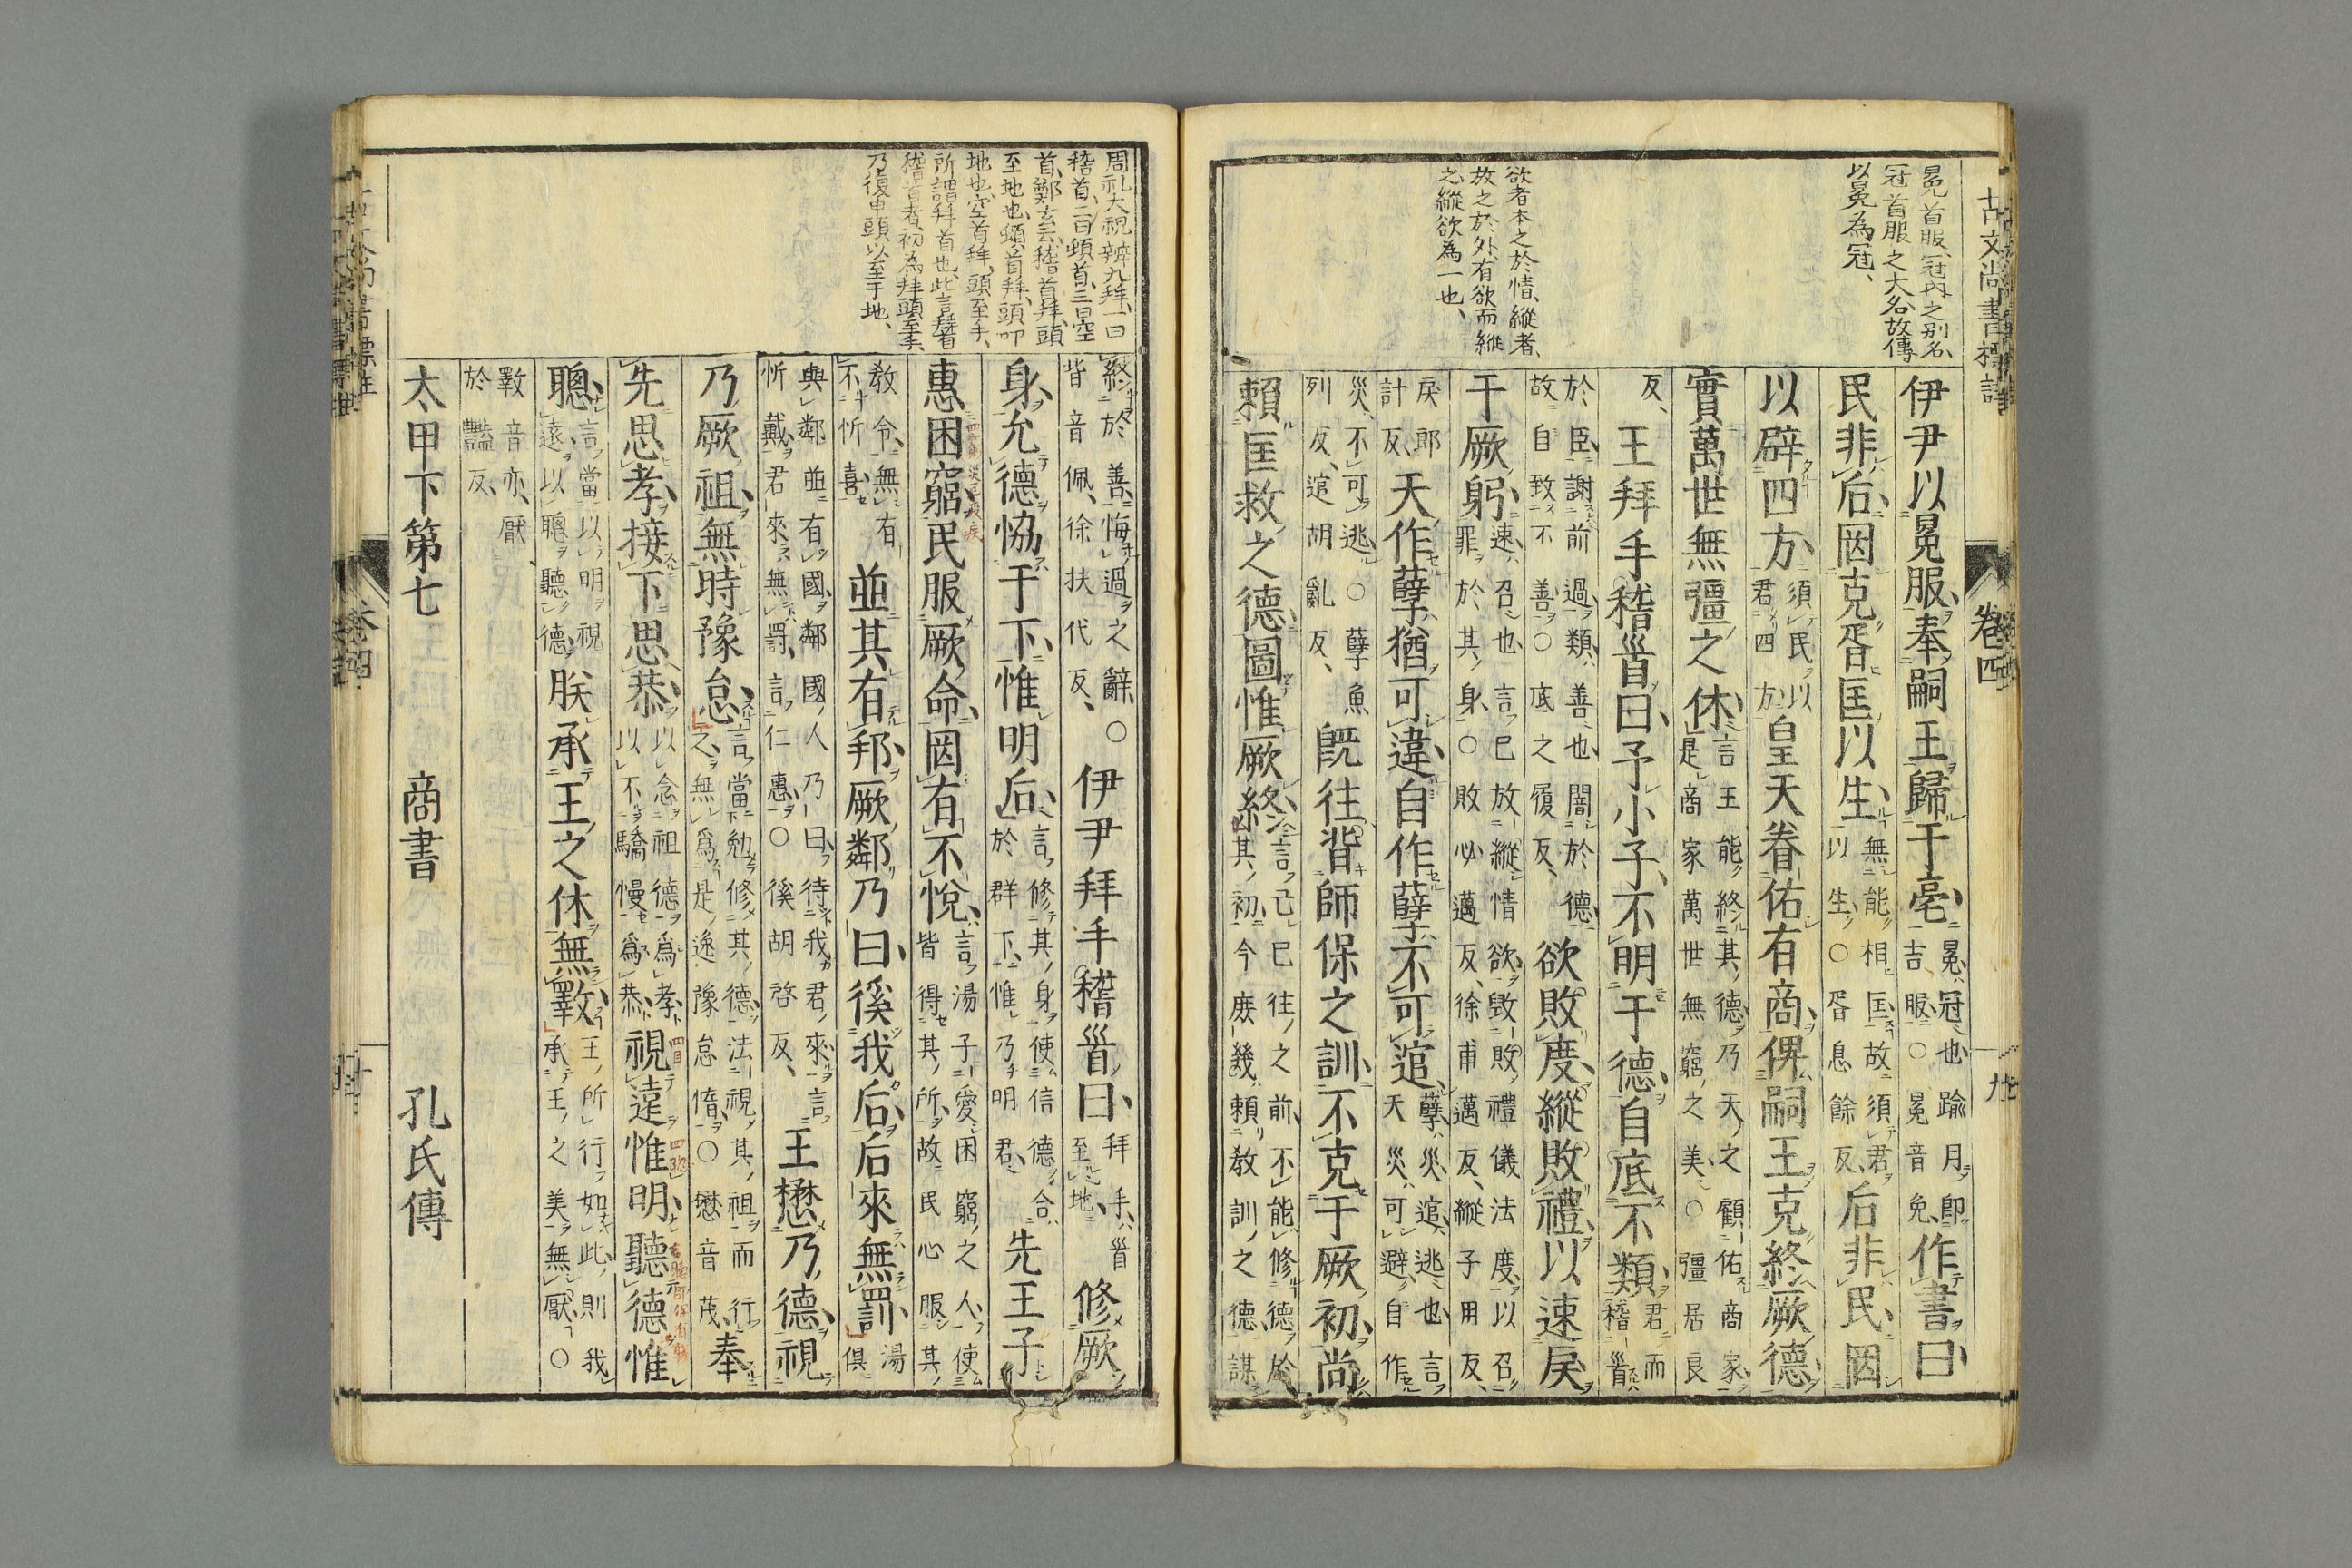 古文尚書標註 卷四 九
冕首服、冠内之别名、
冠首服之大名、故傳
以冕為冠、
欲者本之於情、縱者、
放之於外、有欲而縱
之、縱欲為一也、
伊尹以冕服奉嗣王歸于亳冕冠也踰月即吉服○冕音免作書曰
民非后罔克胥匡以生無能相匡故須君以生○胥息餘反后非民罔
以辟四方須民以君四方皇天眷佑有商俾嗣王克終厥德
實萬世無疆之休言王能終其德乃天之顧佑商家是商家萬世無窮之美○疆居良
反王拜手稽首曰予小子不明于德自底不類君而稽首
於臣謝前過類善也闇於德故自致不善○底之履反欲敗度縱敗禮以速戾
于厥躬速召也言己放縱情欲毀敗禮儀法度以召罪於其身○敗必邁反徐甫邁反縱子用反
戾郎計反天作孽猶可違自作孽不可逭孽災逭逃也言天災可避自作
災不可逃○孽魚列反逭胡亂反既往背師保之訓不克于厥初尚
賴匡救之德圖惟厥終言己已往之前不能修德於其初今庶幾賴教訓之德謀
周礼大祝辨九拜、一曰
稽首、二曰頓首、三曰空
首、鄭玄云、稽首拜、頭
至地也、頓首拜、頭叩
地也、空首拜、頭至手、
所謂拜首也、此言拜手
稽首者、初為拜頭至手、
乃復申頭以至于地、
終於善悔過之辭○背音佩徐扶代反伊尹拜手稽首曰拜手首至地修厥
身允德協于下惟明后言修其身使信德合於群下惟乃明君先王子
惠困窮民服厥命罔有不悅言湯子愛困窮之人使皆得其所故民心服其
教令無有不忻喜並其有邦厥鄰乃曰徯我后后來無罰湯俱
與鄰並有國鄰國人乃曰待我君來言忻戴君來無罰言仁惠○徯胡啓反王懋乃德視
乃厥祖無時豫怠言當勉修其德法視其祖而行之無爲是逸豫怠惰○懋音茂奉
先思孝接下思恭以念祖德爲孝以不驕慢爲恭視遠惟明聽德惟
聰言當以明視遠以聰聽德朕承王之休無斁王所行如此則我承王之美無厭○
斁音亦厭於豔反
太甲下第七 商書 孔氏傳